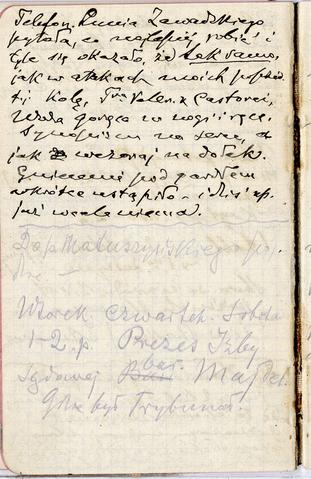 Telefon. Lucia Zawadzkiego
pytała, co najlepiej robić i
tyle się okazało, że tak samo,
jak w atakach moich poprzed.
t.j. Kola, Tra Valer. z Castorei,
Woda gorąca w nogi i ręce.
Synapismy na serce, a
jak wczoraj na dołek.
pod gardłem
wkrótce ustąpiło - i dziś
już wcale niema.
Do p. Matuszyńskiego
Wtorek czwartek Sobota
1-2. p. Prezes Izby
Sądowej bar. Majdel.
Gdzie był Trybunał.